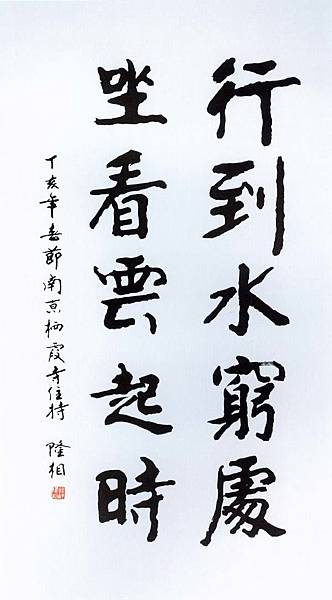 行到水窮處
坐看雲起時
丁亥年春節南京栖霞寺住持 隆相